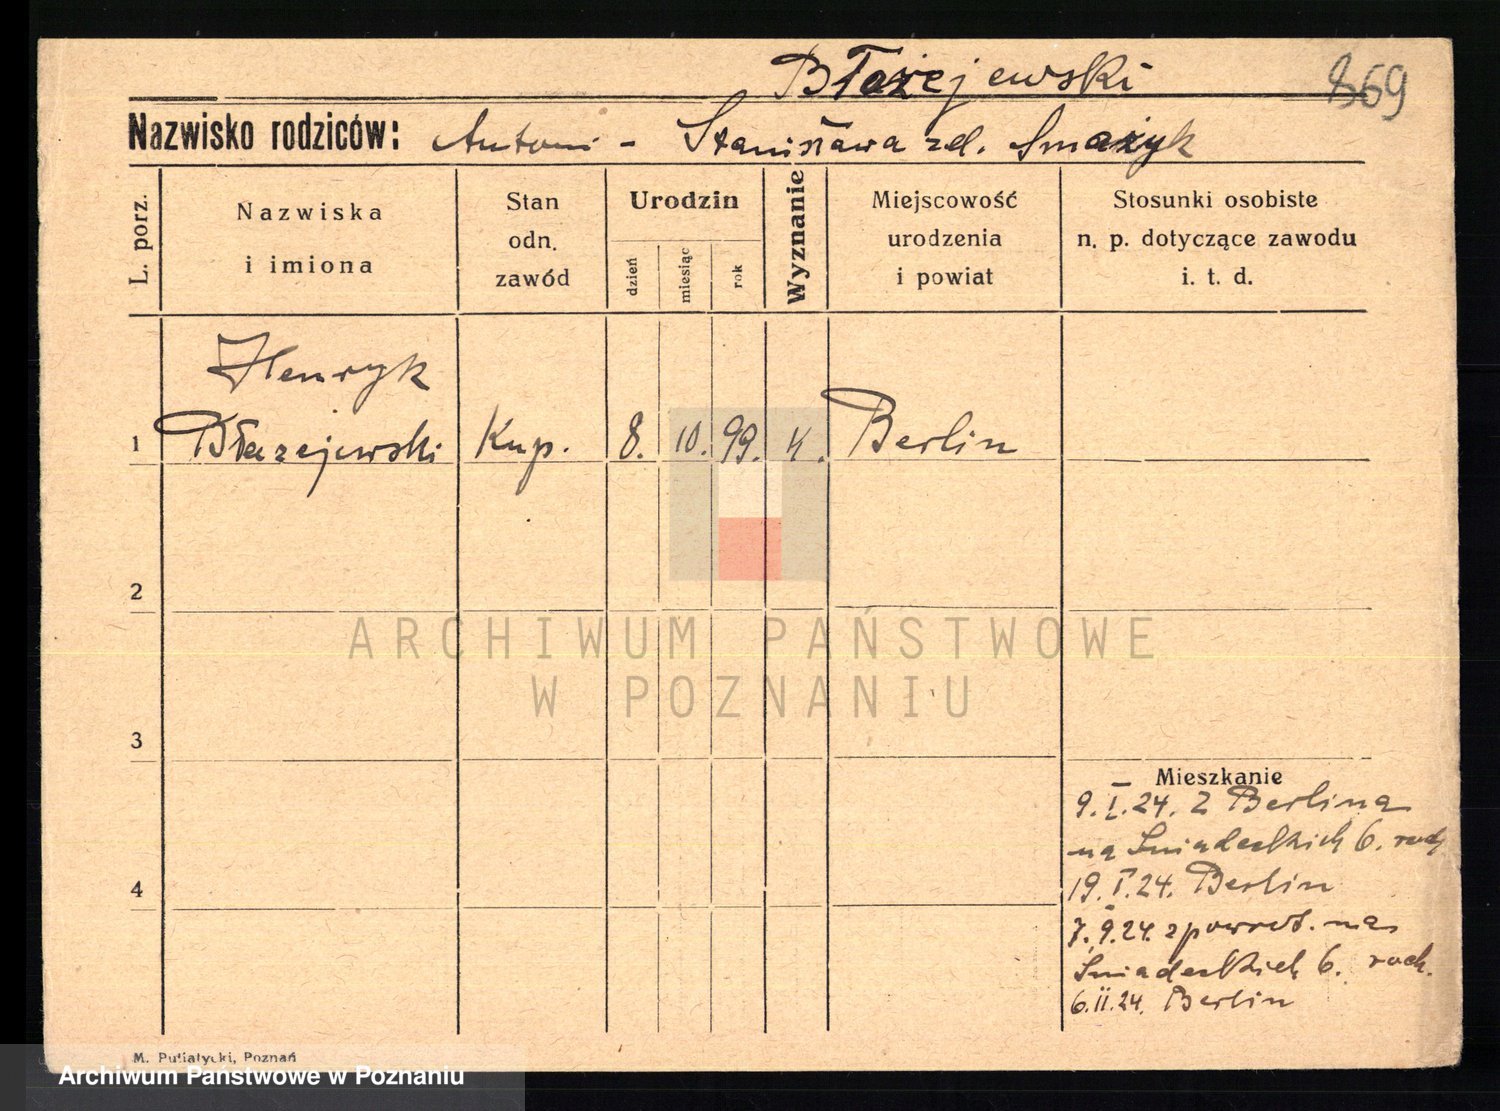 Błażejewski 869
Nazwisko rodziców: Antoni - Stanisława zd. Smażyk
L. porz.
Nazwiska
i imiona
Stan
odn.
zawód
Urodzin
dzień
miesiąc
rok
Wyznanie
Miejscowość
urodzenia
i powiat
Stosunki osobiste
n. p. dotyczące zawodu
i. t. d.
Henryk
1 Błażejewski Kup. 8. 10. 99. k. Berlin
2
ARCHIWUM PAŃSTWOWE
W POZNANIU
3
Mieszkanie
9. I. 24. z Berlina
na Śniadeckich 6.
4
19. I. 24. Berlin
7. 9. 24. zpowrot. na
Śniadeckich 6.
6. II. 24. Berlin
M. Putiatycki, Poznań
Archiwum Państwowe w Poznaniu